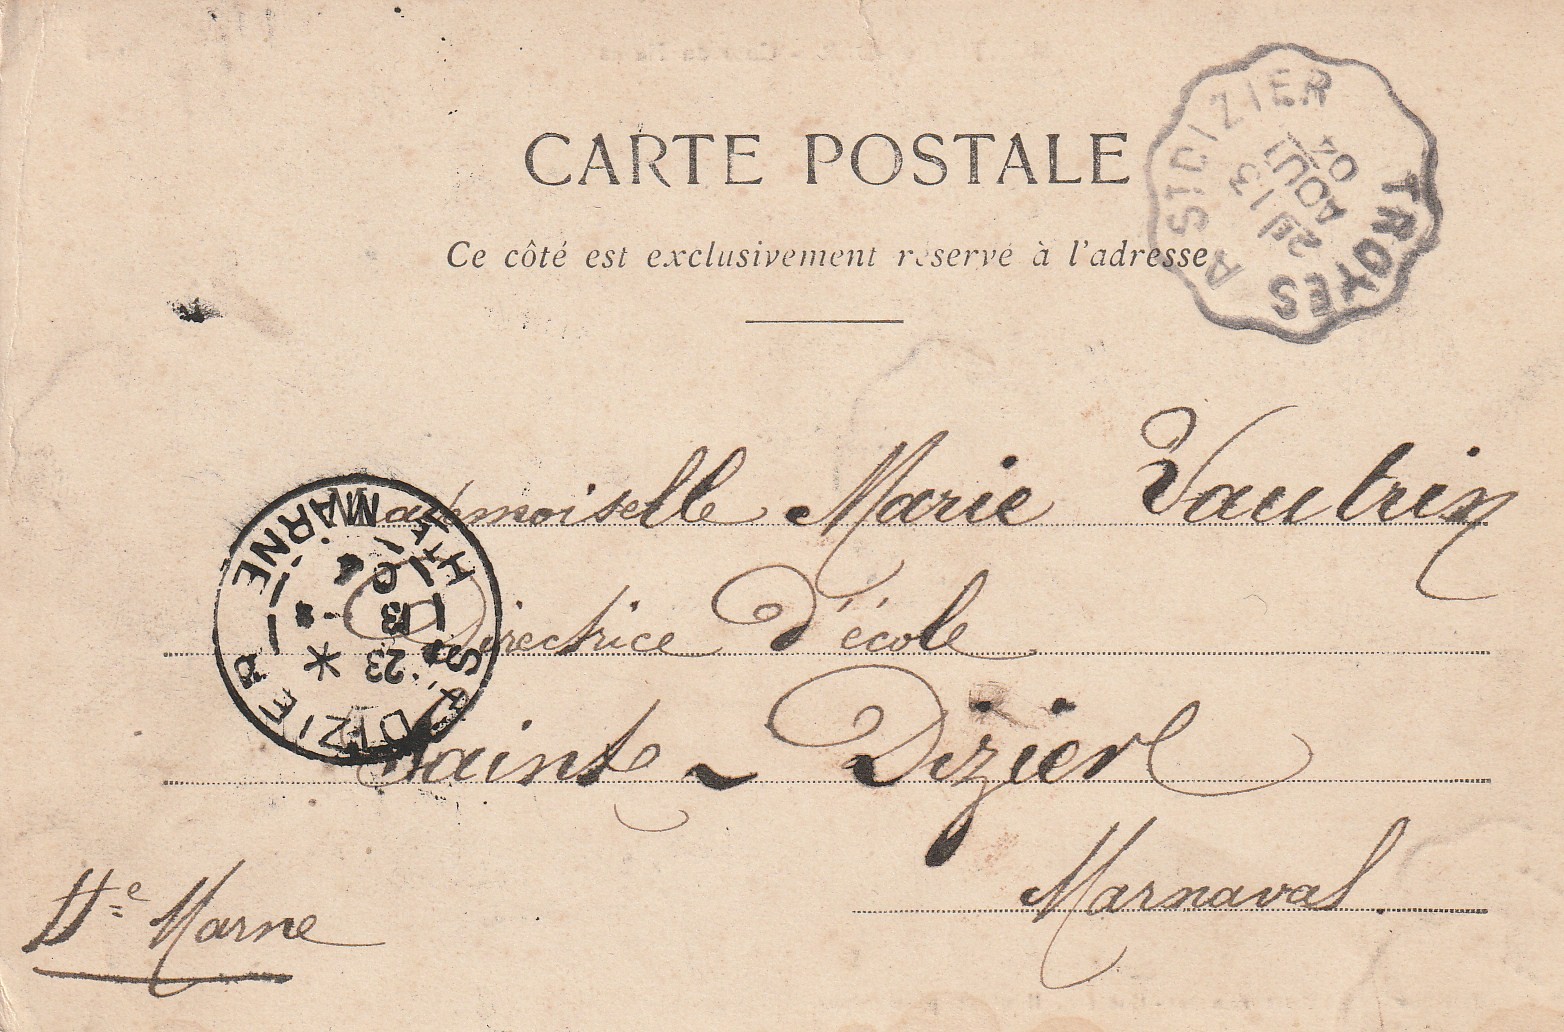 CARTE POSTALE
Ce côté est exclusivement réservé à l'adresse
TROYES A ST DIZIER
2º 13
AOUT
04
Mademoiselle Marie Vautrin
Directrice d'école
Saint-Dizier
Marnaval.
Hte Marne
ST DIZIER HTE MARNE
23
13
04